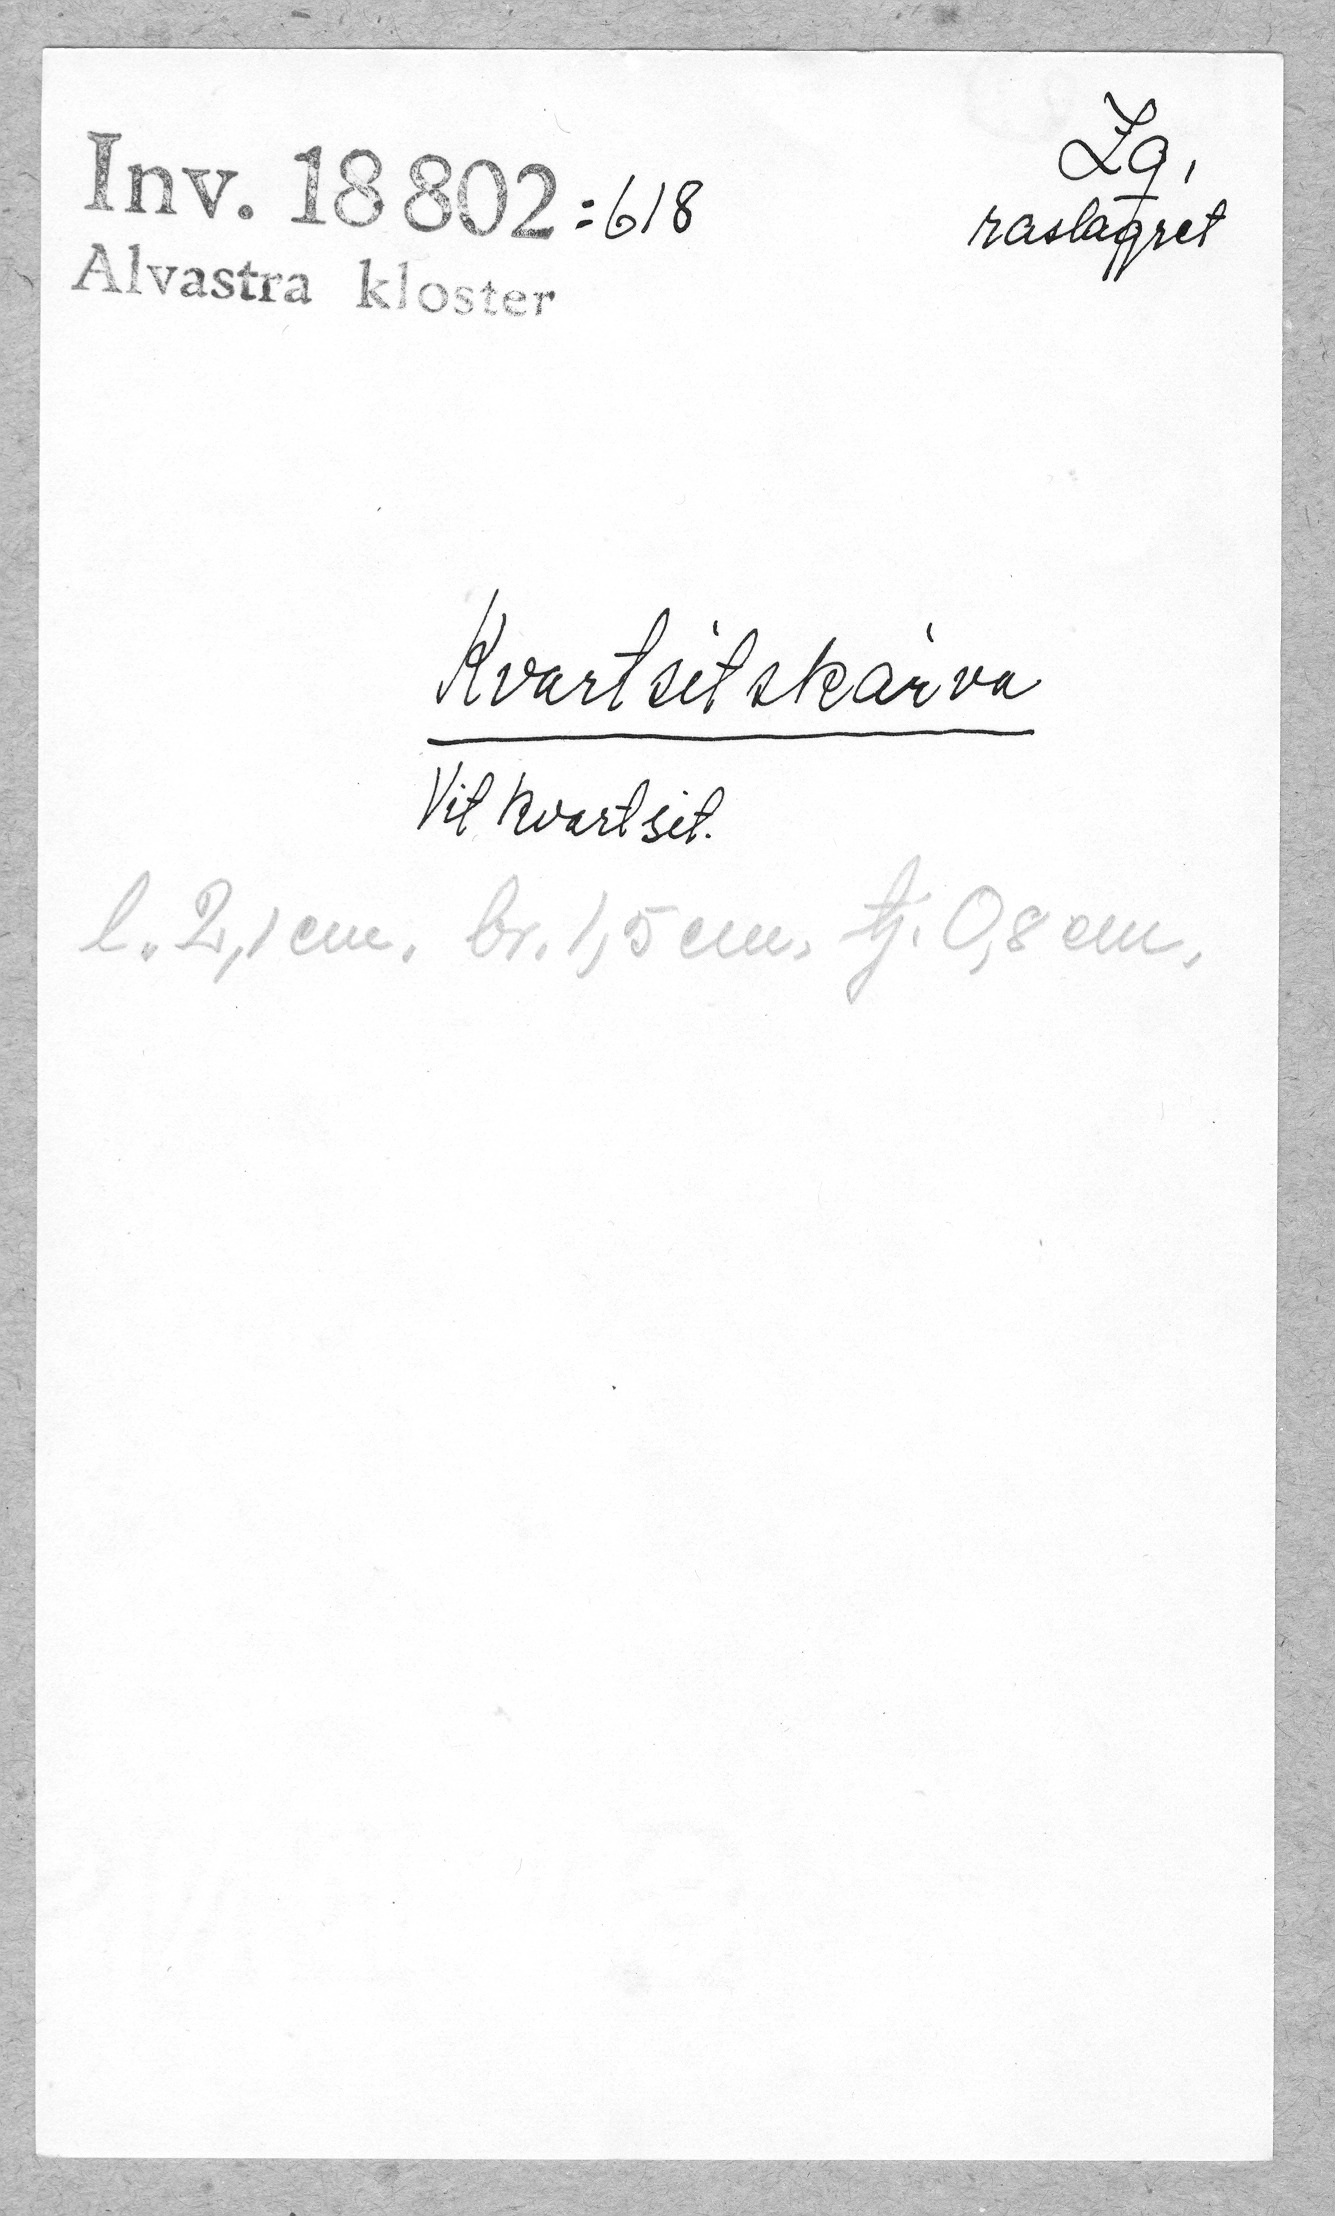 Inv. 18 802:618
Alvastra kloster
Zq,
raslagret
Kvartsitskärva
Vit kvartsit.
l. 2,1 cm. br. 1,5 cm. tj. 0,8 cm.